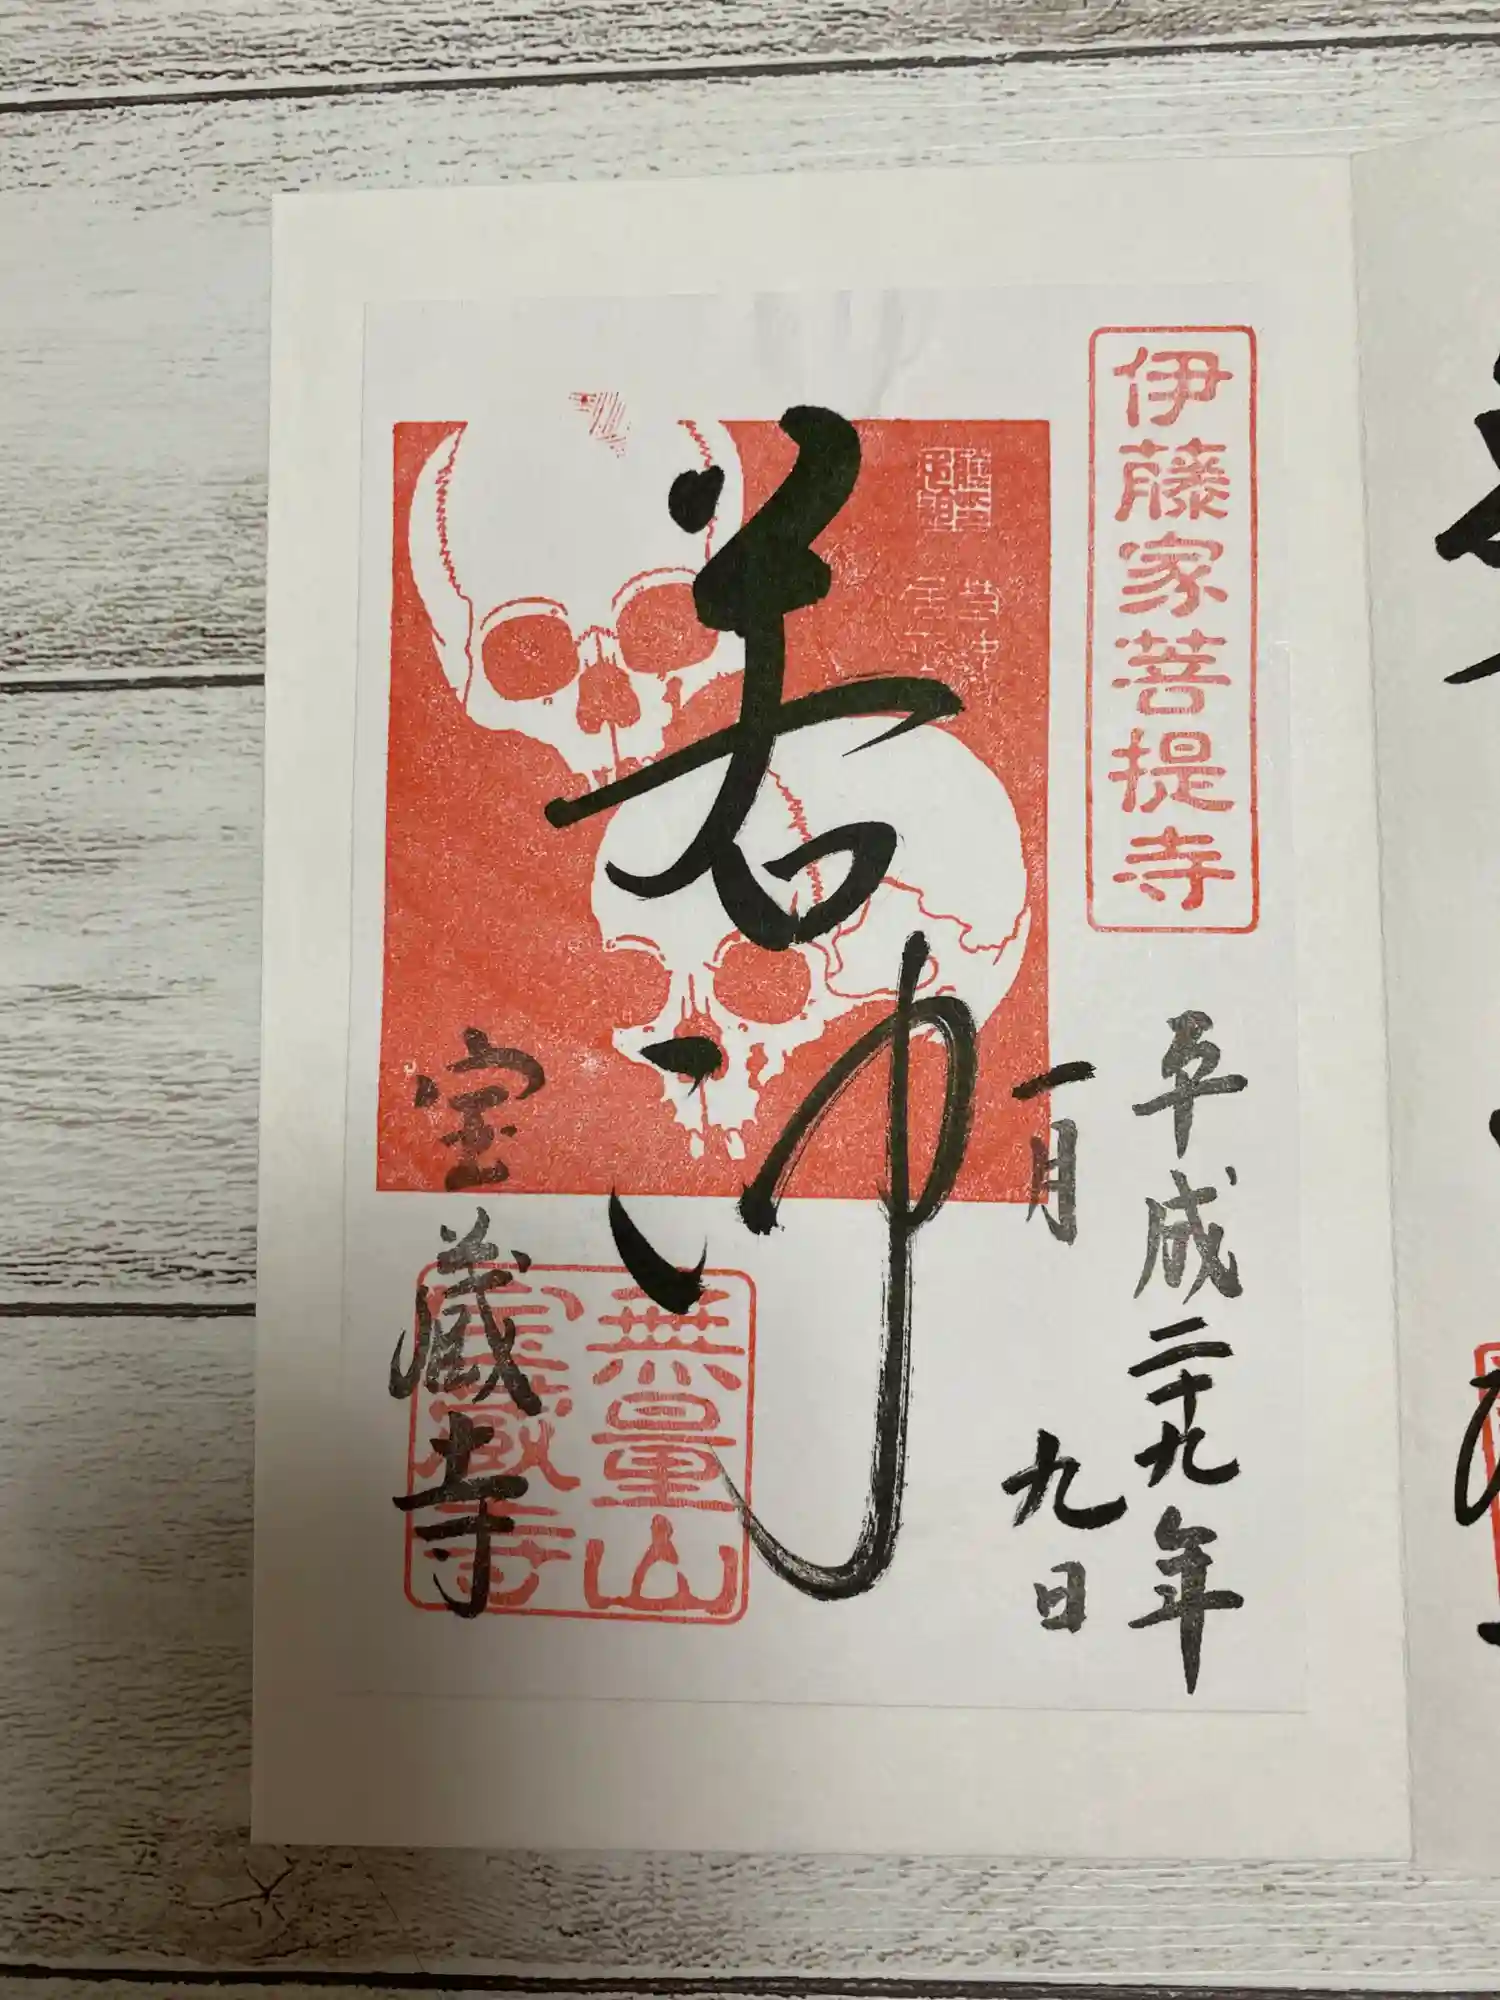 伊藤家菩提寺
平成二十九年
一月
九日
若冲
無量山
宝蔵寺
宝蔵寺